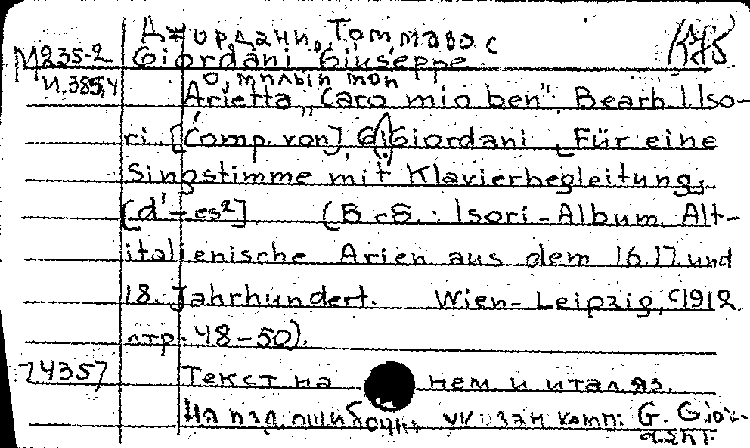 Джордани, Томмазо
М235-2 Giordani Giuseppe
И.385,4 О, милый мой
Arietta „Caro mio ben". Bearb. Iso-
ri. [Comp. von] G. Giordani. Für eine
Singstimme mit Klavierbegleitung.
[d'-es²] (В сб.: Isori-Album. Alt-
italienische Arien aus dem 16. 17. und
18. Jahrhundert. Wien-Leipzig, c1912
стр. 48-50).
74357 Текст на нем. и итал. яз.
На изд. ошибочно указан комп: G. Gior-
dani